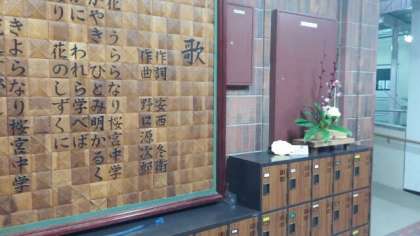 歌
作詞 安西 冬衛
作曲 野口源次郎
花 うららなり桜宮中学
やき ひとみ明かるく
われら学べば
花のしずくに
きよらなり桜宮中学